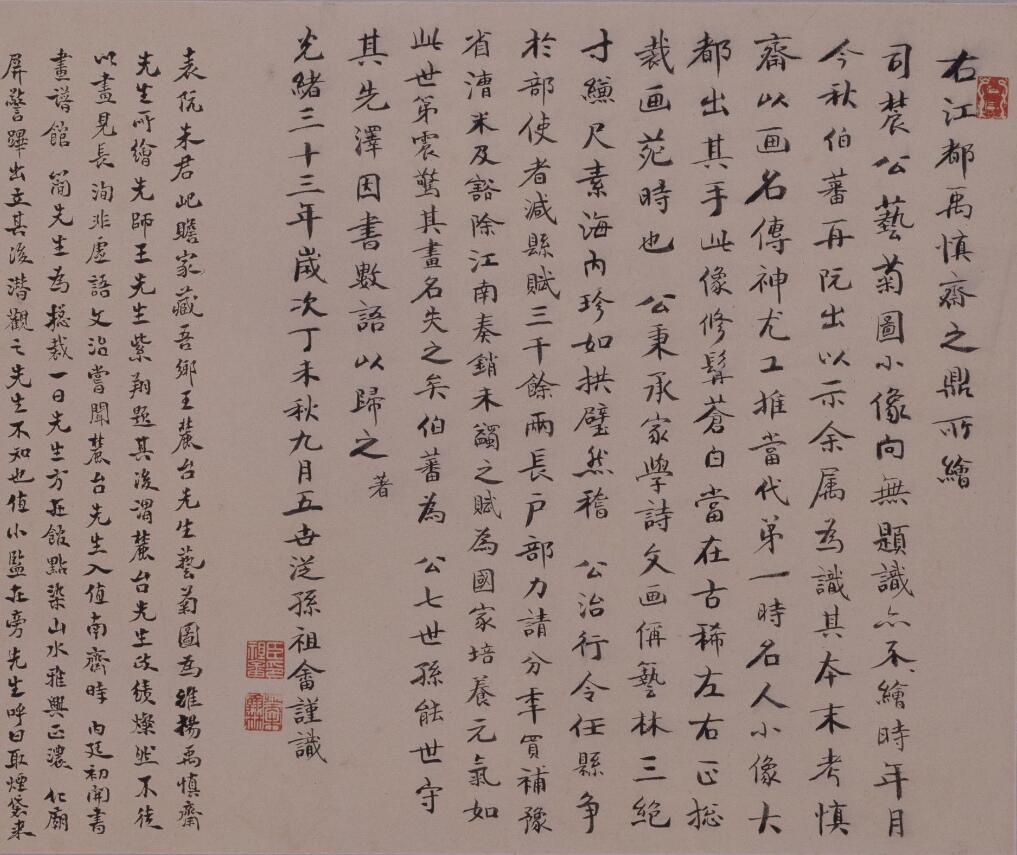 右江都禹慎齋之鼎所繪
司農公藝菊圖小像向無題識亦不繪時年月
今秋伯蕃再阮出以示余属為識其本末考慎
齋以画名傳神尤工推當代第一時名人小像大
都出其手此像修髯蒼白當在古稀左右正総
裁画苑時也 公秉承家學詩文画偁藝林三絕
寸縑尺素海內珍如拱璧然稽 公治行令任縣争
於部使者減縣賦三千餘兩長户部力請分年買補豫
省漕米及豁除江南奏銷未蠲之賦為國家培養元氣如
此世第震驚其畫名失之矣伯蕃為 公七世孫能世守
其先澤因書數語以歸之
著
光緒三十三年歲次丁未秋九月五世从孫祖畬謹識
表阮朱君屺瞻家藏吾鄉王麓台先生藝菊圖為維揚禹慎齋
先生所繪先師王先生紫翔題其後謂麓台先生政績燦然不徒
以畫見長洵非虛語文治嘗聞麓台先生入值南齋時 內廷初開書
畫譜館 簡先生為総裁一日先生方在館點染山水雅興正濃 仁廟
屏警蹕出立其後潛觀之先生不知也值小監在旁先生呼曰取煙袋来